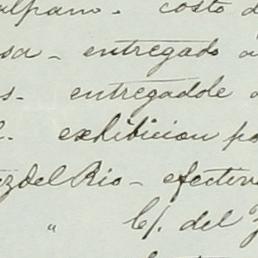 ulpano. costo d
sa - entregado a
s. entregadole a
l. exhibicion po
ez del Rio - efectiv
" C/. del